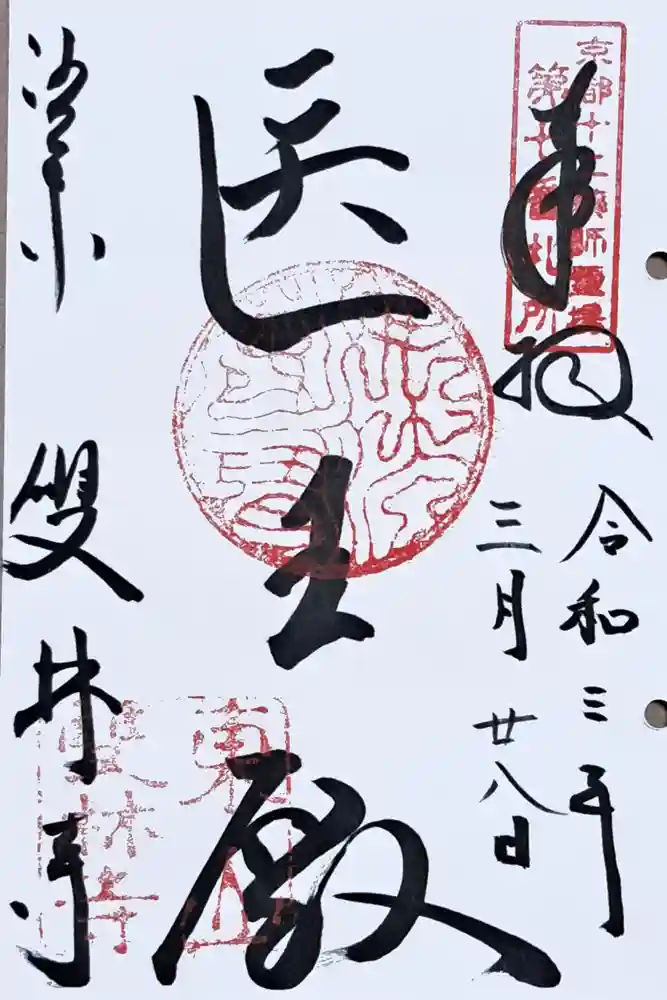 京都十二薬師霊場
第七番札所
奉拝
令和三年
三月廿八日
医王殿
雙林寺
東山
雙林寺